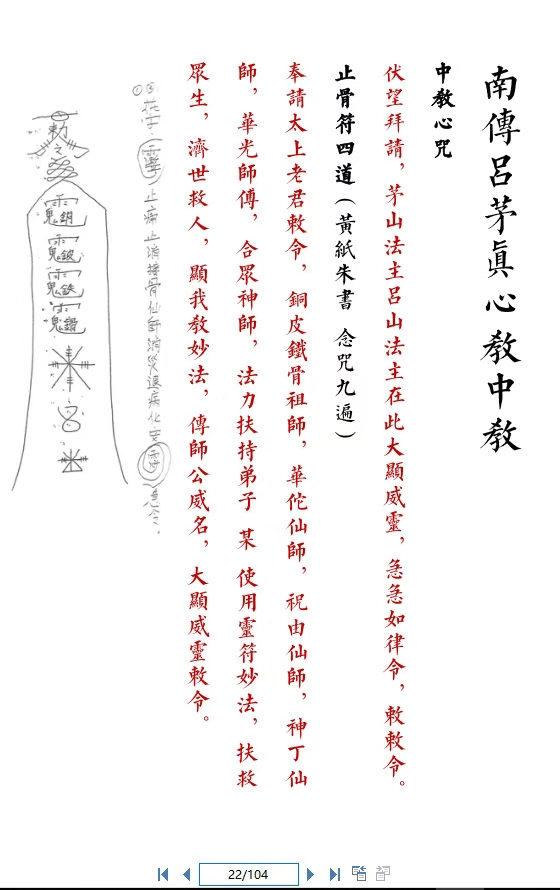 南傳呂茅眞心教中教
中教心咒
伏望拜請，茅山法主呂山法主在此大顯威靈，急急如律令，敕敕令。
止骨符四道（黃紙朱書　念咒九遍）
奉請太上老君敕令，銅皮鐵骨祖師，華佗仙師，祝由仙師，神丁仙
師，華光師傅，合眾神師，法力扶持弟子 某 使用靈符妙法，扶救
眾生，濟世救人，顯我教妙法，傳師公威名，大顯威靈敕令。
止病止消接骨仙師消災退病化
敕
22/104